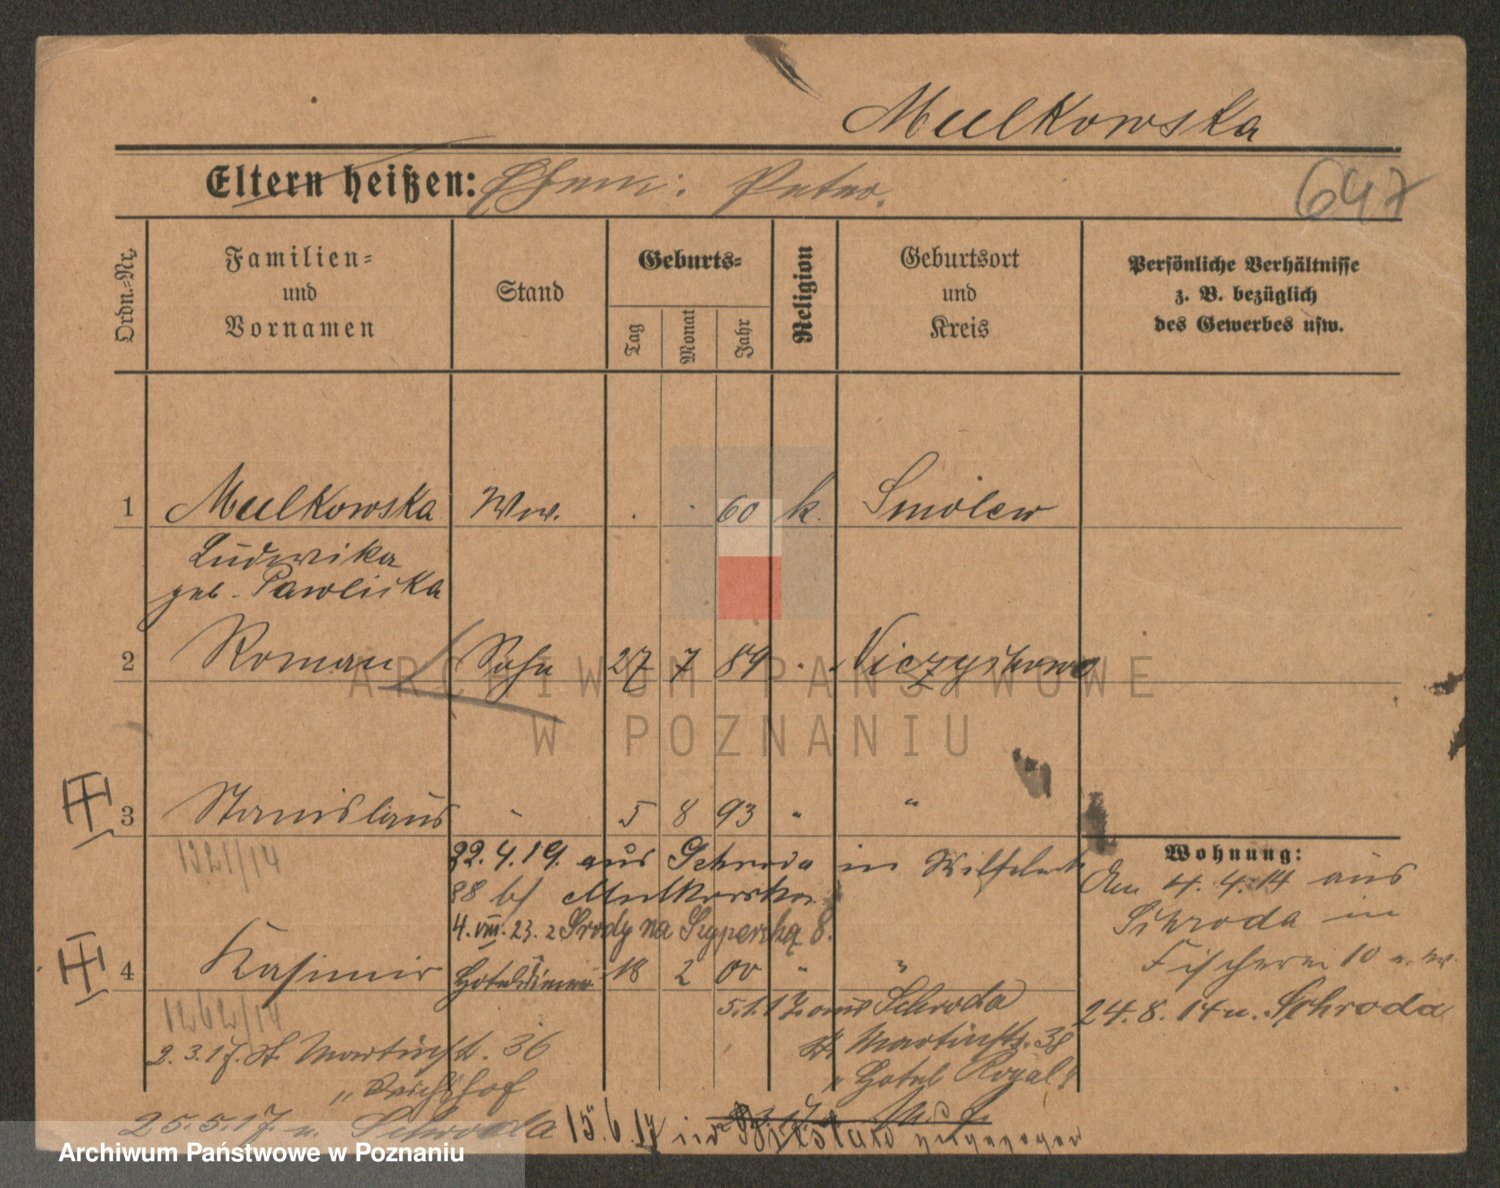 Mulkowska
Eltern heißen: Ehem: Peter.
647
Ordn.-Nr.
Familien-
und
Vornamen
Stand
Geburts-
Tag
Monat
Jahr
Religion
Geburtsort
und
Kreis
Persönliche Verhältnisse
z. B. bezüglich
des Gewerbes usw.
1 Mulkowska Ww. . . 60 k. Smolew
Ludwika
geb. Pawlicka
2 Roman Sohn 27 7 89 "
3 Stanislaus " 5 8 93 " "
1321/14
22.4.19. aus Schroda in
88 b/ Mulkowska
4.VIII.23. z Środy na Szyperską 8.
Wohnung:
Am 4.4.14 aus
Schroda in
Fischerei 10
24.8.14 n. Schroda
4 Kasimir Hoteldiener 18 2 00 " "
1262/14
5.1.17 aus Schroda
St Martinstr. 38
" Hotel Royal
2.3.17. St. Martinstr. 36
" Reichshof
25.5.17. n. Schroda 15.6.17 in
ARCHIWUM PAŃSTWOWE
W POZNANIU
Archiwum Państwowe w Poznaniu